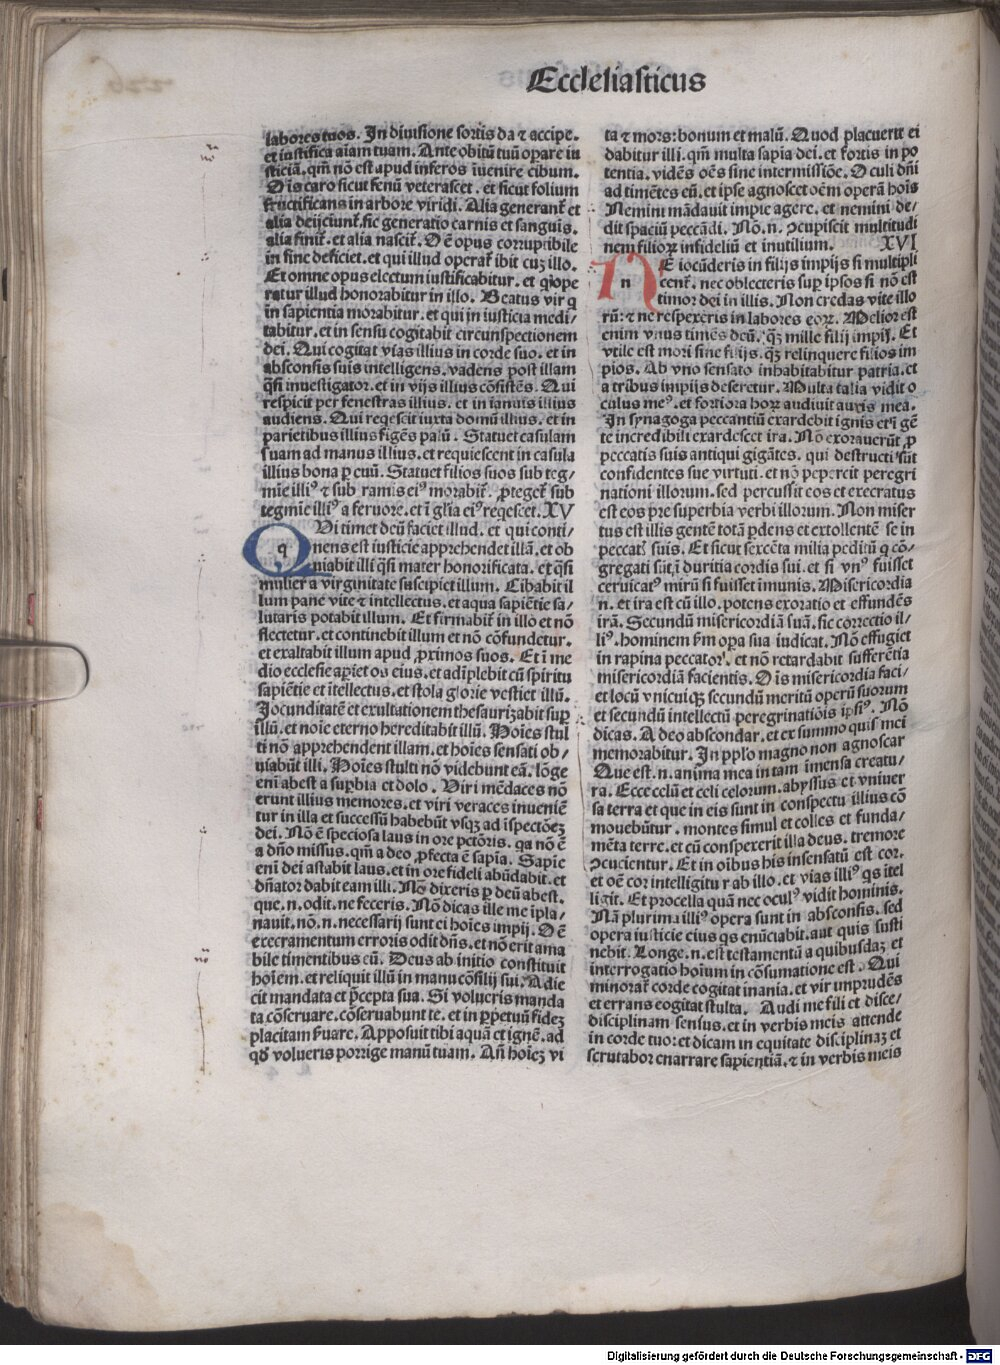 Ecclesiasticus
labores tuos. In diuisione sortis da ⁊ accipe.
et iustifica aīam tuam. Ante obitū tuū opare iu
sticiā. qm̄ nō est apud inferos inuenire cibum.
Oīs caro sicut fenū veterascet. et sicut folium
fructificans in arbore viridi. Alia generant̄ et
alia deijciunt̄. sic generatio carnis et sanguis.
alia finit̄. et alia nascit̄. Oē opus corruptibile
in fine deficiet. et qui illud operat̄ ibit cuz illo.
Et omne opus electum iustificabitur. et q̇ ope
ratur illud honorabitur in illo. Beatus vir q̇
in sapientia morabitur. et qui in iusticia medi/
tabitur. et in sensu cogitabit circunspectionem
dei. Qui cogitat vias illius in corde suo. et in
absconsis suis intelligens. vadens post illam
q̄si inuestigator. et in vijs illius cōsistēs. Qui
respicit per fenestras illius. et in ianuis illius
audiens. Qui reqescit iuxta domū illius. et in
parietibus illius figēs palū. Statuet casulam
suam ad manus illius. et requiescent in casula
illius bona p̱ euū. Statuet filios suos sub teg/
mie illiꝰ ⁊ sub ramis eiꝰ morabit̄. ꝓteget̄ sub
tegmie illiꝰ a feruore. et ī glīa eiꝰ reqescet. XV
Qui timet deū faciet illud. et qui conti/
nens est iusticie apprehendet illā. et ob
uiabit illi q̄si mater honorificata. et q̄si
mulier a virginitate suscipiet illum. Cibabit il
lum pane vite ⁊ intellectus. et aqua sapiētie sa/
lutaris potabit illum. Et firmabit̄ in illo et nō
flectetur. et continebit illum et nō cōfundetur.
et exaltabit illum apud ꝓximos suos. Et ī me
dio ecclesie apiet os eius. et adīplebit cū spiritu
sapiētie et ītellectus. et stola glorie vestiet illū.
Iocunditatē et exultationem thesaurizabit sup̱
illū. et noīe eterno hereditabit illū. Hoīes stul
ti nō apprehendent illam. et hoīes sensati ob/
uiabūt illi. Hoīes stulti nō videbunt eā. lōge
enī abest a supbia et dolo. Viri mēdaces nō
erunt illius memores. et viri veraces inueniē
tur in illa et successū habebūt vsqz ad īspectōez
dei. Nō ē speciosa laus in ore pctōris. qa nō ē
a dn̄o missus. qm̄ a deo ꝓfecta ē sapīa. Sapīe
enī dei astabit laus. et in ore fideli abūdabit. et
dn̄ator dabit eam illi. Nō dixeris p̱ deū abest.
que. n. odit. ne feceris. Nō dicas ille me īpla/
nauit. nō. n. necessarij sunt ei hoīes impij. Oē
execramentum erroris odit dn̄s. et nō erit ama
bile timentibus eū. Deus ab initio constituit
hoīem. et reliquit illū in manu cōsilij sui. Adie
cit mandata et p̄cepta sua. Si volueris manda
ta cōseruare. cōseruabunt te. et in ppetuū fidez
placitam ẜuare. Apposuit tibi aquā et ignē. ad
qd̄ volueris porrige manū tuam. An̄ hoīez vi
ta ⁊ mors: bonum et malū. Quod placuerit ei
dabitur illi. qm̄ multa sapīa dei. et fortis in po
tentia. vidēs oēs sine intermissiōe. Oculi dn̄i
ad timētes eū. et ipse agnoscet oēm operā hoīs
Nemini mādauit impie agere. et nemini de/
dit spaciū peccādi. Nō. n. ꝯcupiscit multitudi
nem filioꝝ infideliū et inutilium. XVI
Ne iocūderis in filijs impijs si multipli
cent̄. nec oblecteris sup̱ ipsos si nō est
timor dei in illis. Non credas vite illo
rū: ⁊ ne respexeris in labores eoꝝ. Melior est
enim vnus timēs deū. qz̄ mille filij impij. Et
vtile est mori sine filijs. qz̄ relinquere filios im
pios. Ab vno sensato inhabitabitur patria. et
a tribus impijs deseretur. Multa talia vidit o
culus meꝰ. et fortiora hoꝝ audiuit auris mea.
In synagoga peccantiū exardebit ignis et ī gē
te incredibili exardescet ira. Nō exorauerūt ꝓ
peccatis suis antiqui gigātes. qui destructi sūt
confidentes sue virtuti. et nō pepercit peregri
nationi illorum. sed percussit eos et execratus
est eos pre superbia verbi illorum. Non miser
tus est illis gentē totā pdens et extollentē se in
peccat̄ suis. Et sicut sexcēta milia peditū q̇ cō/
gregati sūt ī duritia cordis sui. et si vnꝰ fuisset
ceruicatꝰ mirū si fuisset īmunis. Misericordia
n. et ira est cū illo. potens exoratio et effundēs
irā. Secundū misericordiā suā. sic correctio il/
liꝰ. hominem ẜm opa sua iudicat. Nō effugiet
in rapina peccator. et nō retardabit sufferētia
misericordiā facientis. Oīs misericordia faci/
et locū vnicuiqz secundū meritū operū suorum
et secundū intellectū peregrinatiōis ipsiꝰ. Nō
dicas. A deo abscondar. et ex summo quis mei
memorabitur. In pplo magno non agnoscar
Que est. n. anima mea in tam īmensa creatu/
ra. Ecce celū et celi celorum. abyssus et vniuer
sa terra et que in eis sunt in conspectu illius cō
mouebūtur. montes simul et colles et funda/
mēta terre. et cū conspexerit illa deus. tremore
ꝯcucientur. Et in oībus his insensatū est cor.
et oē cor intelligitur ab illo. et vias illiꝰ qs ītel
ligit. Et procella quā nec oculꝰ vidit hominis.
Nā plurima illiꝰ opera sunt in absconsis. sed
opera iusticie eius qs enūciabit. aut quis susti
nebit. Longe. n. est testamentū a quibusdaz et
interrogatio hoīum in cōsumatione est. Qui
minorat̄ corde cogitat inania. et vir imprudēs
et errans cogitat stulta. Audi me fili et disce/
disciplinam sensus. et in verbis meis attende
in corde tuo: et dicam in equitate disciplinaz et
scrutabor enarrare sapientiā. ⁊ in verbis meis
Digitalisierung gefördert durch die Deutsche Forschungsgemeinschaft - DFG